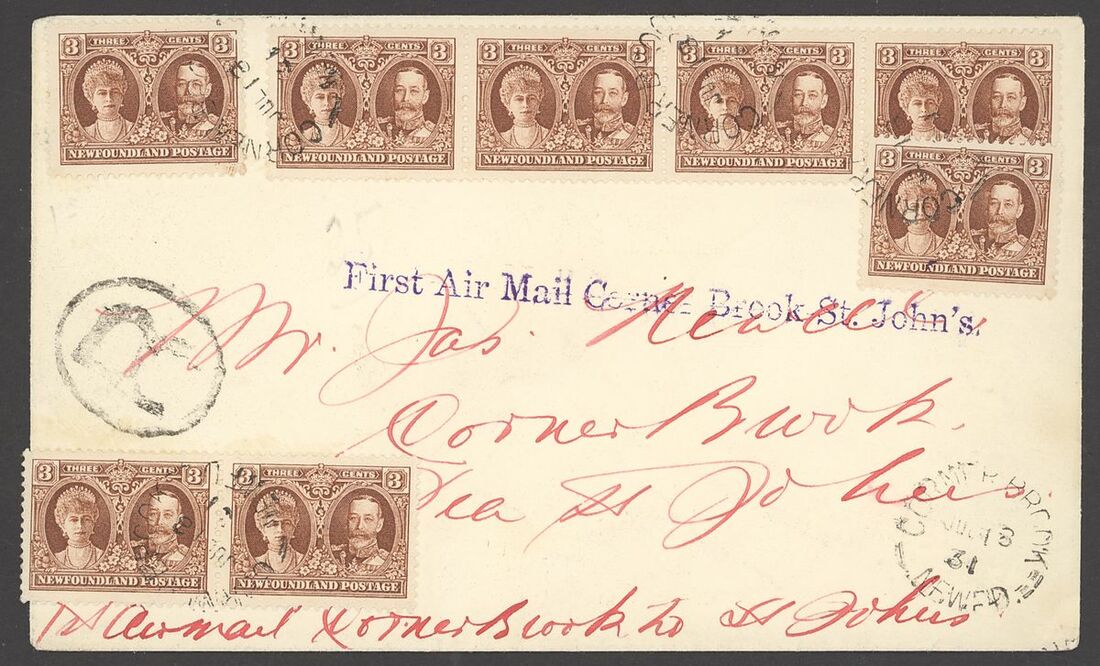 3 THREE CENTS 3
NEWFOUNDLAND POSTAGE
3 THREE CENTS 3
NEWFOUNDLAND POSTAGE
3 THREE CENTS 3
NEWFOUNDLAND POSTAGE
3 THREE CENTS 3
NEWFOUNDLAND POSTAGE
3 THREE CENTS 3
3 THREE CENTS 3
NEWFOUNDLAND POSTAGE
CORNER
JUL 18
CORNE
CORNER
First Air Mail Corner Brook-St. John's.
R
Mr. Jas Newell
Corner Brook.
Via St Johns.
3 THREE CENTS 3
NEWFOUNDLAND POSTAGE
3 THREE CENTS 3
NEWFOUNDLAND POSTAGE
CORNER BROOK
JUL 18
31
NEWF'D
1st Airmail Corner Brook to St Johns